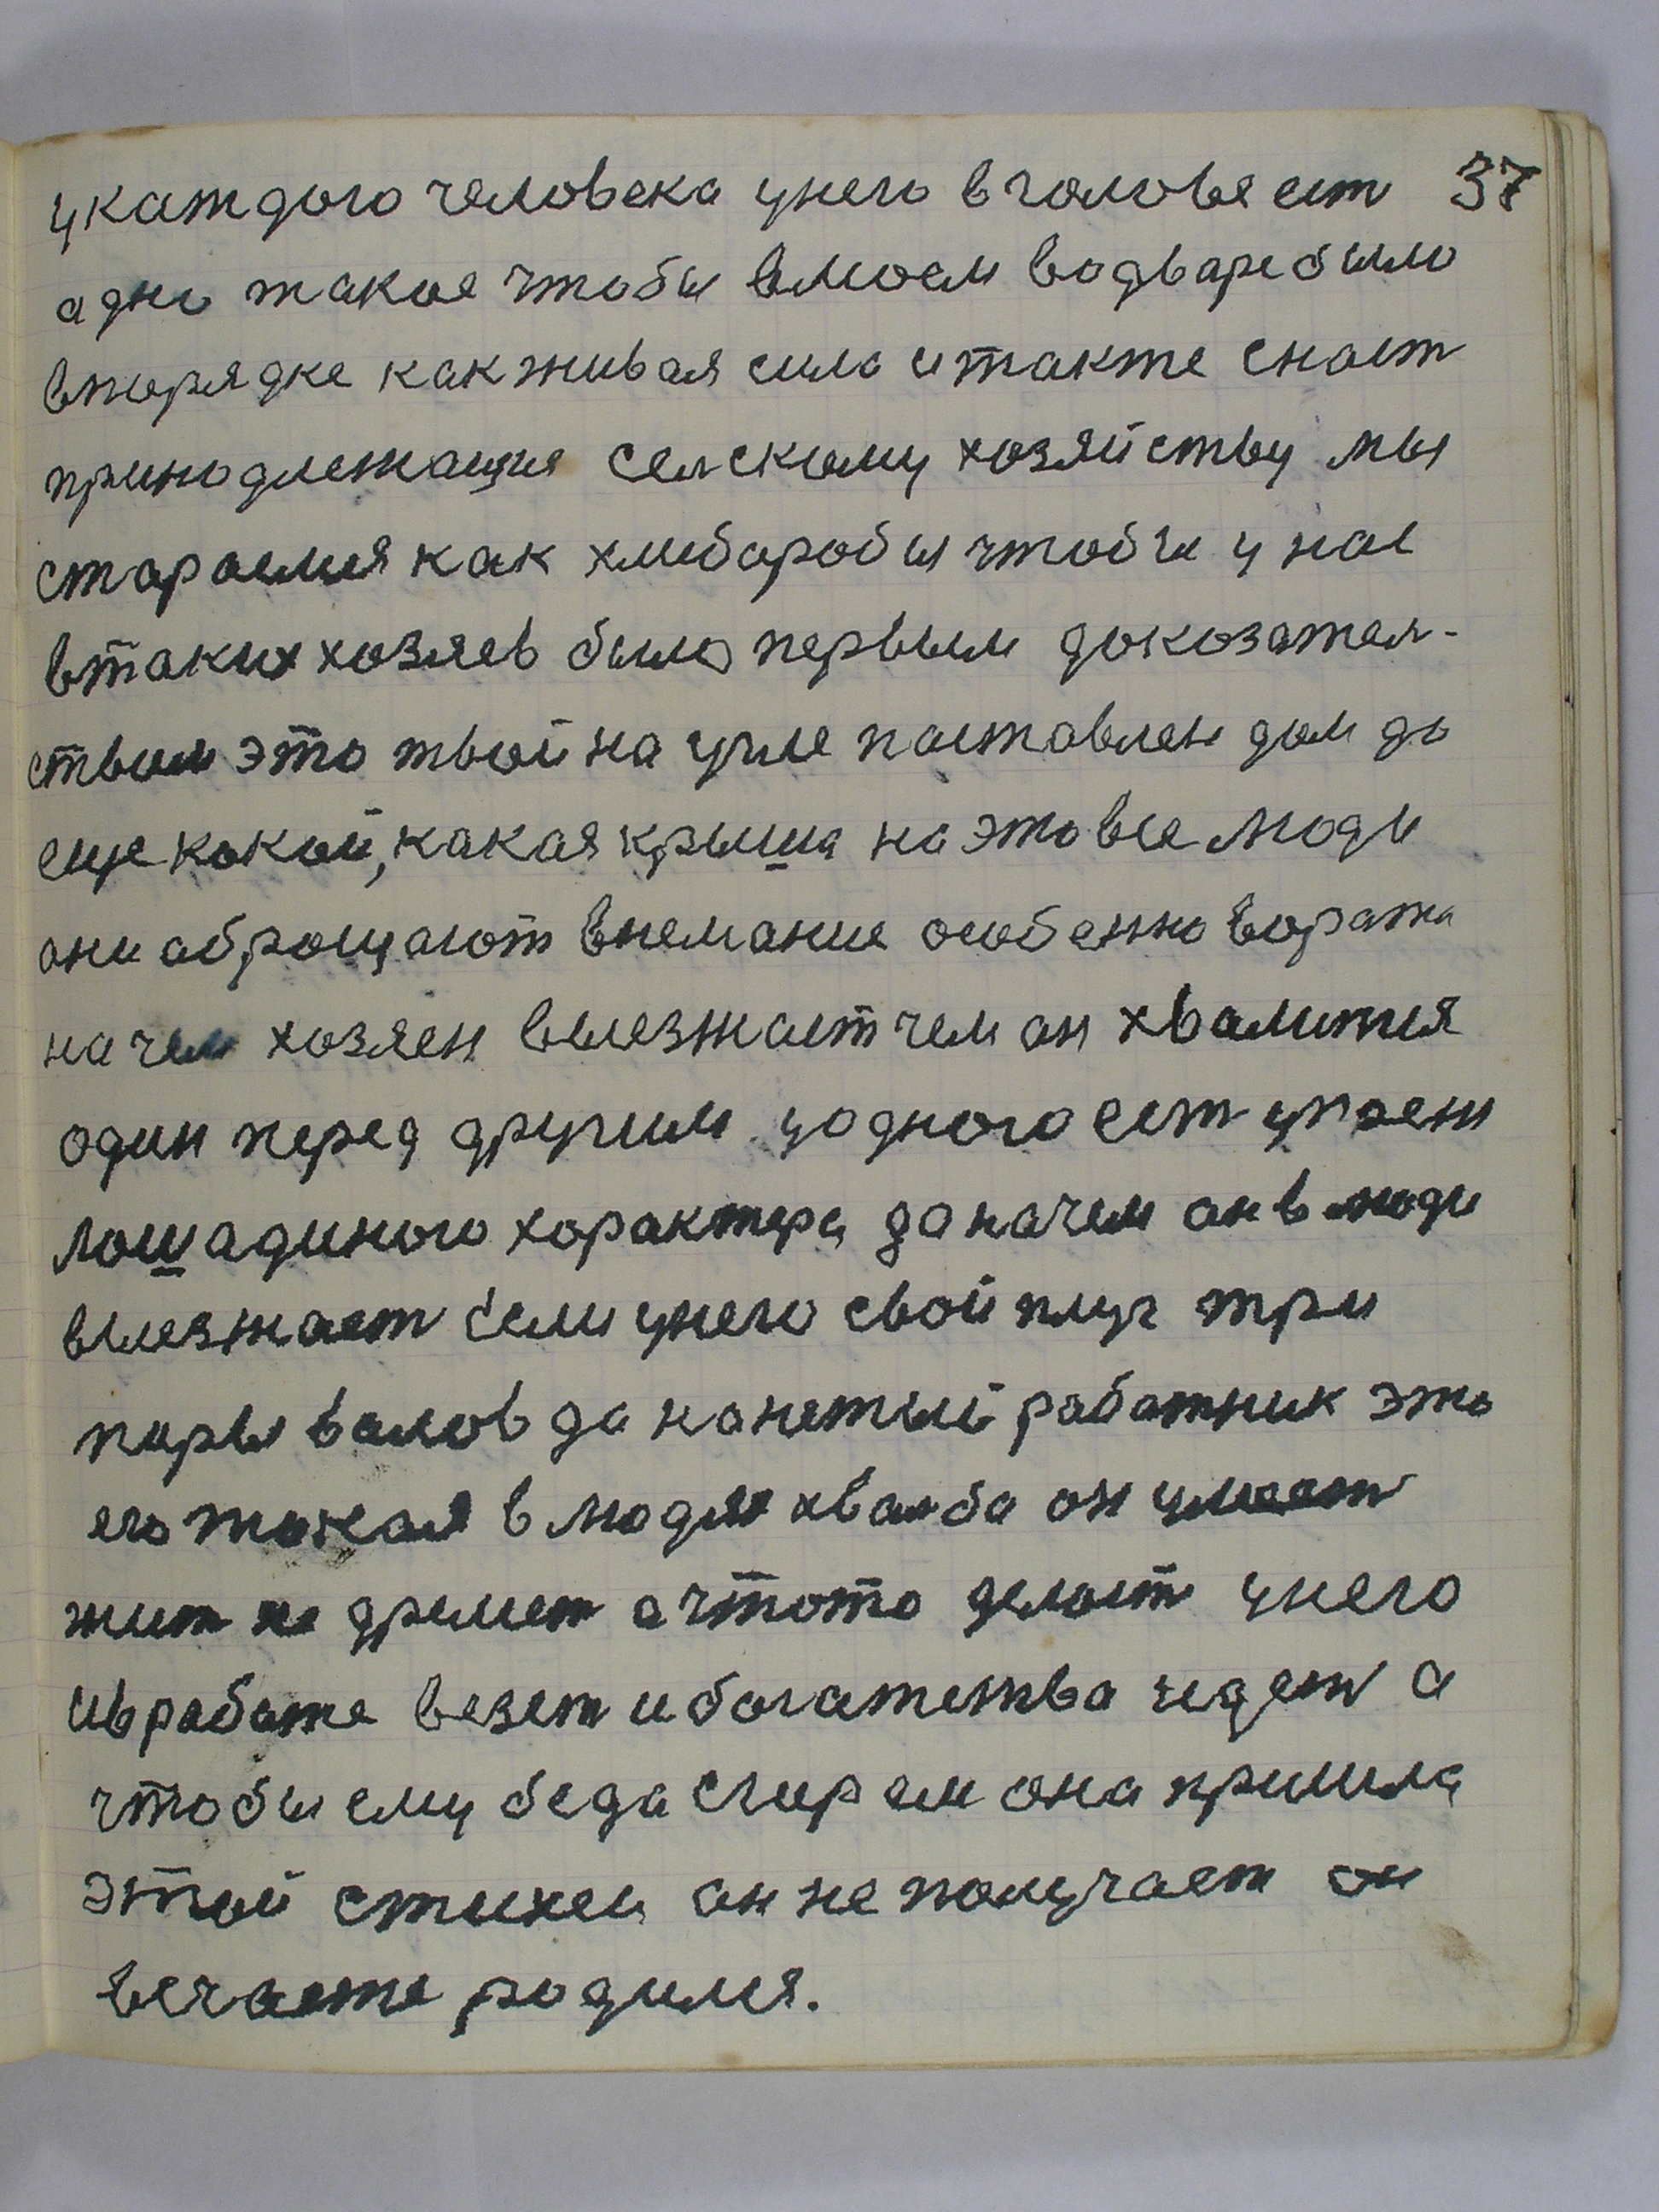 укаждого человека унего вголовье ест 37
адно такое чтобы вмоем водваре было
впорядке какживая сила итакже снаст
принодлежащия селскому хозяйству мы
стораемся как хлибаробы чтобы у нас
втаких хозяев было первым докозател-
ством это твой на улице поставлен дом да
еще какой, какая крыша на это все люди
они аброщают внемание особенно воража
на чем хозяен выезжает чем он хвалится
один перед другим уодного ест упоен
лошадиного хорактера да начем он в люди
выезжает если унего свой плуг три
пары валов да нанетый работник это
его такая в людях хвалба он умеет
жит не дремет а чтото делает унего
ивработе везет ибогатества идет а
чтобы ему беда сгорем она пришла
этой стихеи он не получает он
всчасте родился.